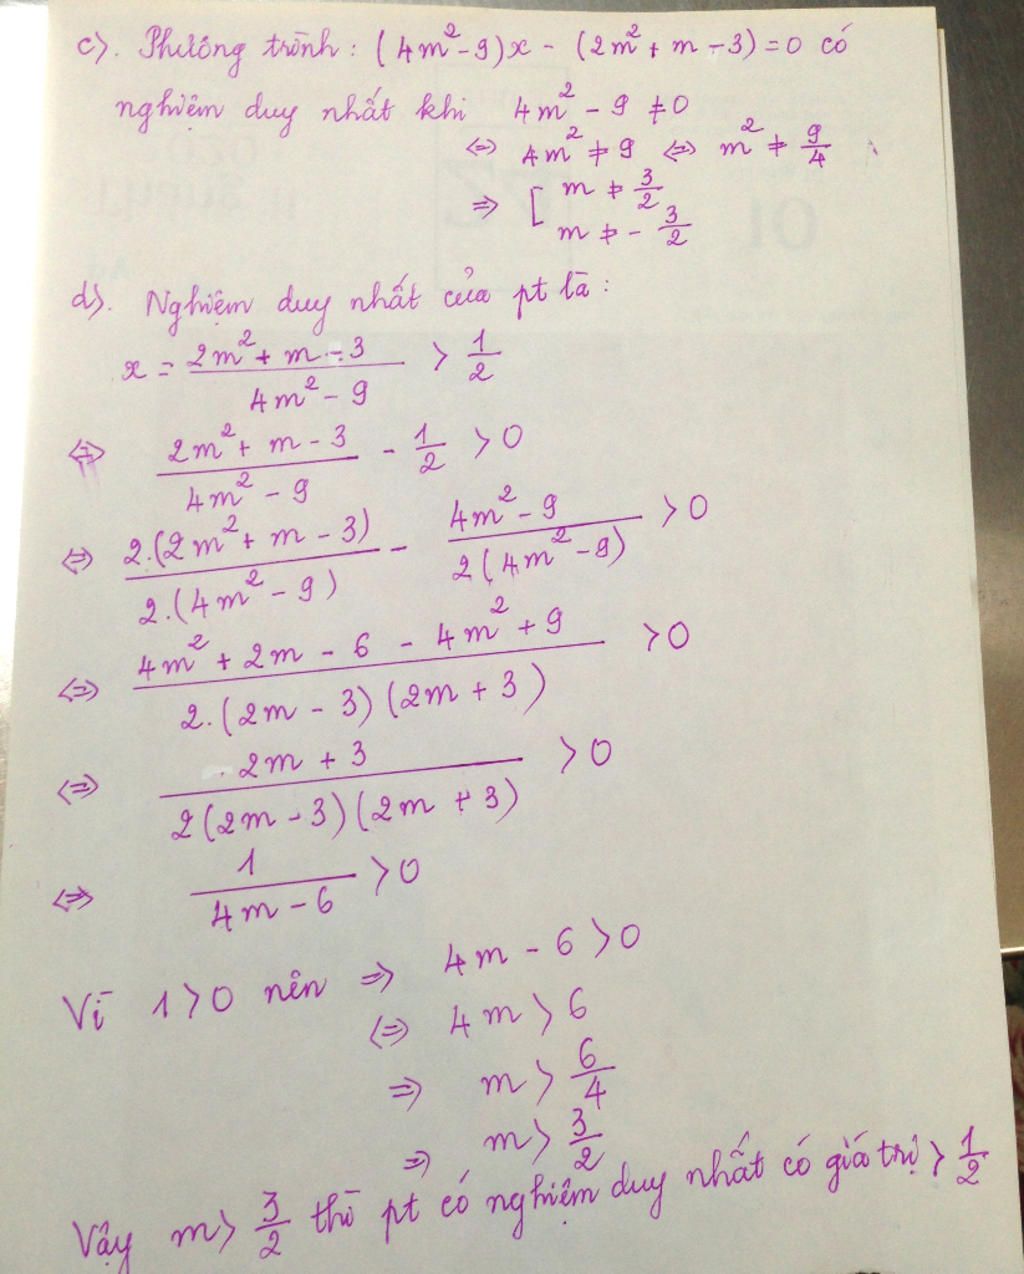 c). Phương trình: (4m² - 9)x - (2m² + m - 3) = 0 có
nghiệm duy nhất khi 4m² - 9 ≠ 0
⇔ 4m² ≠ 9 ⇔ m² ≠ 9/4
⇒ [ m ≠ 3/2
m ≠ - 3/2
d). Nghiệm duy nhất của pt là:
x = (2m² + m - 3)/(4m² - 9) > 1/2
⇔ (2m² + m - 3)/(4m² - 9) - 1/2 > 0
⇔ 2.(2m² + m - 3)/2.(4m² - 9) - (4m² - 9)/2(4m² - 9) > 0
⇔ (4m² + 2m - 6 - 4m² + 9)/2.(2m - 3)(2m + 3) > 0
⇔ (2m + 3)/2(2m - 3)(2m + 3) > 0
⇔ 1/(4m - 6) > 0
Vì 1 > 0 nên ⇒ 4m - 6 > 0
⇔ 4m > 6
⇒ m > 6/4
⇒ m > 3/2
Vậy m > 3/2 thì pt có nghiệm duy nhất có giá trị > 1/2